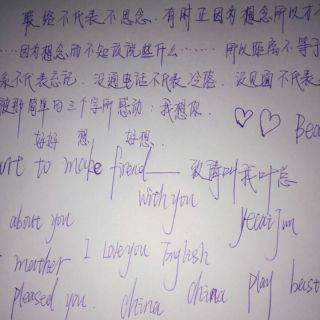 联络不代表不思念. 有时正因为想念所以不
……因为想念而不知该说些什么…… 所以距离不等于
系不代表忘记. 没通电话不代表冷落. 没见面不代表
被那简单的三个字所感动: 我想你.
好好 想 好想. Bea
to make friend 致 叫我叶总
with you
about you yecai Jun
mother I Love you English
pleased you. china china play bask